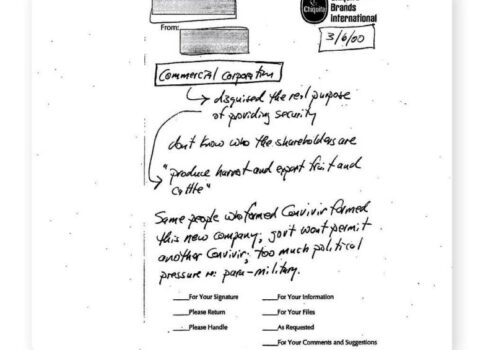 Chiquita
Brands
International
From:
3/6/00
Commercial Corporation
disguised the real purpose
of providing security
don't know who the shareholders are
"produce harvest and export fruit and
cattle"
Same people who formed Convivir formed
this new company; govt won't permit
another Convivir; too much political
pressure re: para-military.
For Your Signature
For Your Information
Please Return
For Your Files
Please Handle
As Requested
For Your Comments and Suggestions